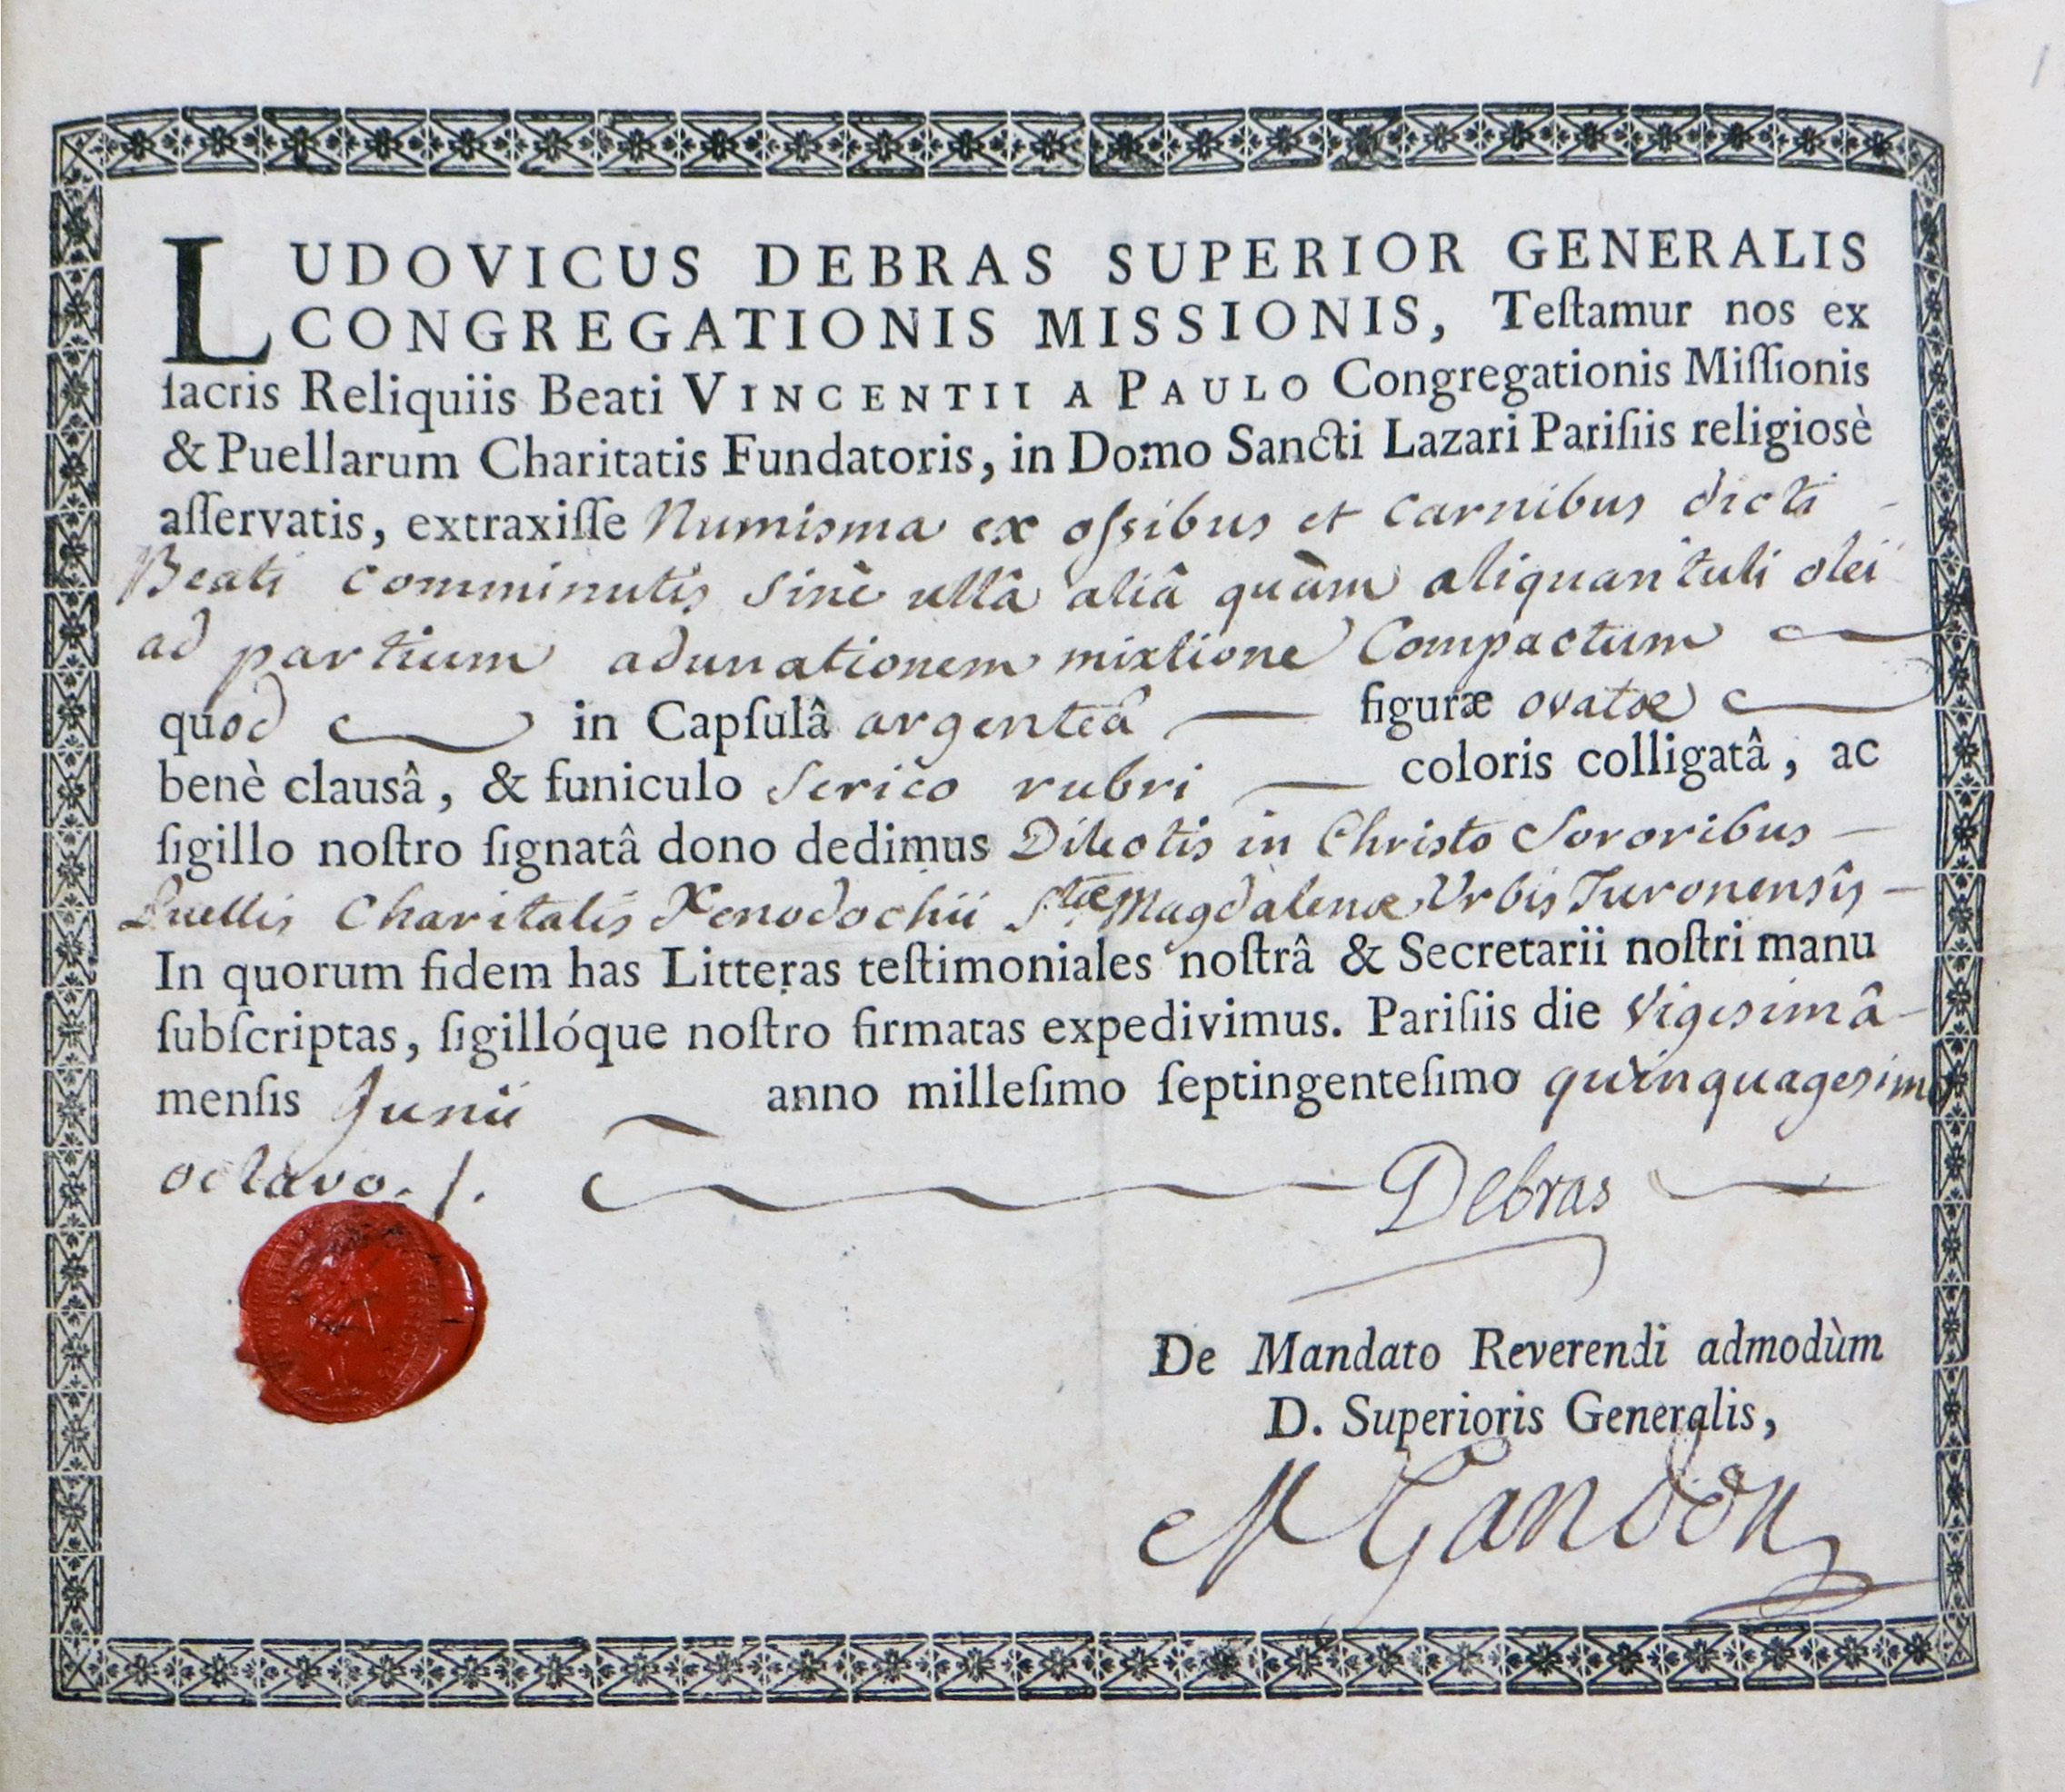 LUDOVICUS DEBRAS SUPERIOR GENERALIS
CONGREGATIONIS MISSIONIS, Teſtamur nos ex
ſacris Reliquiis Beati VINCENTII A PAULO Congregationis Miſſionis
& Puellarum Charitatis Fundatoris, in Domo Sancti Lazari Pariſiis religiosè
aſſervatis, extraxiſſe Numisma ex oſsibus et carnibus dicti
Beati comminutis sine ullâ aliâ quàm aliquantuli olei
ad partium adunationem mixtione Compactum
quod in Capſulâ argenteâ figuræ ovatæ
benè clausâ, & funiculo Serico rubri coloris colligatâ, ac
ſigillo noſtro ſignatâ dono dedimus Dilectis in Christo Sororibus
Puellis Charitatis Xenodochii Stæ Magdalenæ Urbis Turonensis
In quorum fidem has Litteras teſtimoniales noſtrâ & Secretarii noſtri manu
ſubſcriptas, ſigillóque noſtro firmatas expedivimus. Pariſiis die Vigesimâ
menſis Junii anno milleſimo ſeptingenteſimo quinquagesimo
octavo. /.
Debras
De Mandato Reverendi admodùm
D. Superioris Generalis,
M Gandon